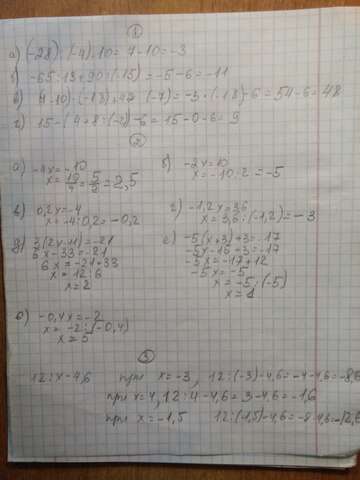 1
а) (-28) : (-4) - 10 = 7 - 10 = -3
б) -65 : 13 + 90 : (-15) = -5 - 6 = -11
в) (4-10) · (-13) + 42 : (-7) = -3 · (-18) - 6 = 54 - 6 = 48
г) 15 - (4 + 8 : (-2)) - 6 = 15 - 0 - 6 = 9
2
а) -4x = -10
x = 10/4 = 5/2 = 2,5
б) -2x = 10
x = -10 : 2 = -5
в) 0,2x = -4
x = -4 : 0,2 = -0,2
г) -1,2x = 3,6
x = 3,6 : (-1,2) = -3
д) 3(2x-11) = -21
6x - 33 = -21
6x = -21 + 33
x = 12 : 6
x = 2
е) -5(x+3)+3 = -17
-5x - 15 + 3 = -17
-5x = -17 + 12
-5x = -5
x = -5 : (-5)
x = 1
-0,4x = -2
x = -2 : (-0,4)
x = 5
3
12 : x - 4,6 при x = -3, 12 : (-3) - 4,6 = -4 - 4,6 = -8,6
при x = 4, 12 : 4 - 4,6 = 3 - 4,6 = -1,6
при x = -1,5 12 : (-1,5) - 4,6 = -8 - 4,6 = -12,6